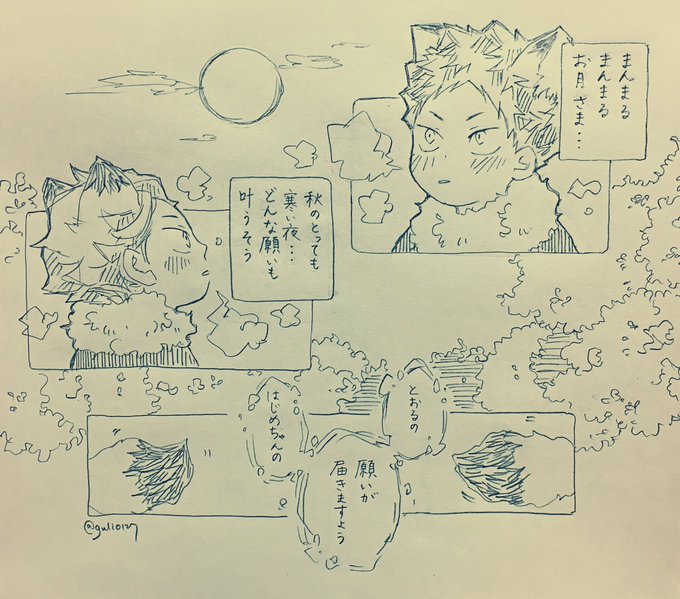 まんまる
まんまる
お月さま・・・
秋のとっても
寒い夜・・・
どんな願いも
叶うそう
とおるの
はじめちゃんの
願いが
届きますよう